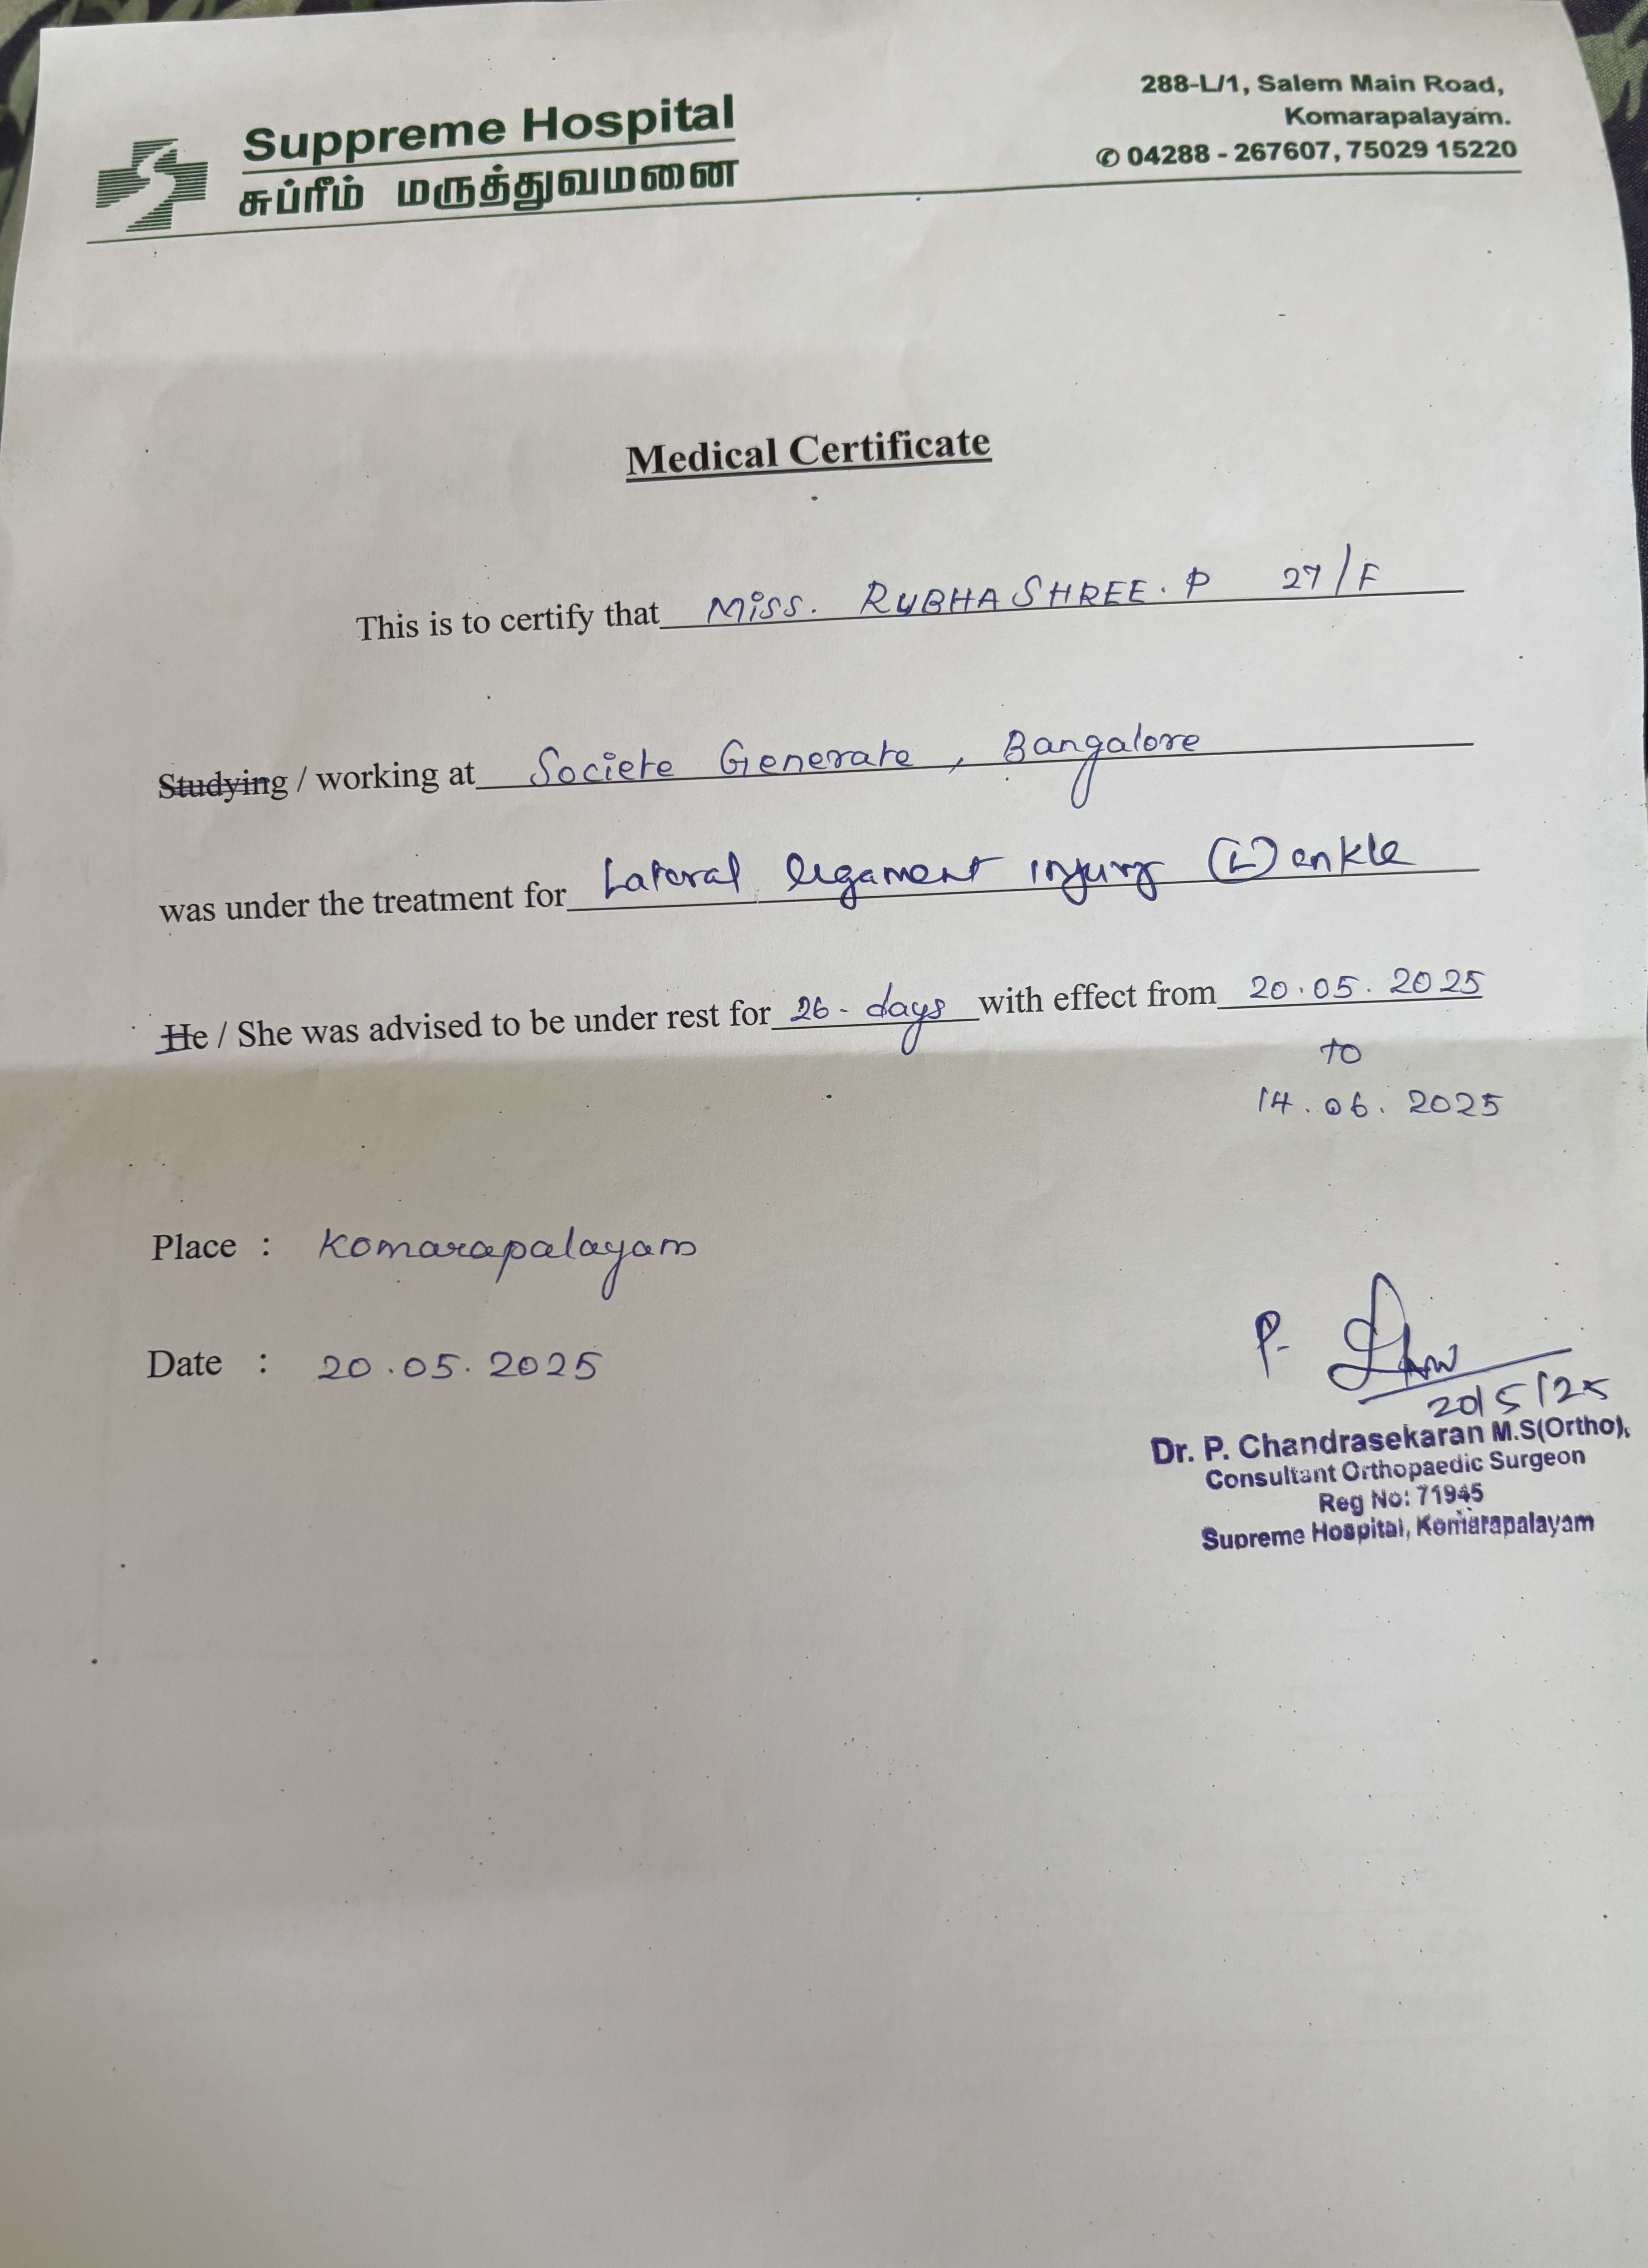 Suppreme Hospital
சுப்ரீம் மருத்துவமனை
288-L/1, Salem Main Road,
Komarapalayam.
✆ 04288 - 267607, 75029 15220
Medical Certificate
This is to certify that Miss. RUBHA SHREE. P 27/F
Studying / working at Societe Generate, Bangalore
was under the treatment for Lateral ligament injury (L) ankle
He / She was advised to be under rest for 26 - days with effect from 20.05.2025
TO
14.06.2025
Place : Komarapalayam
Date : 20.05.2025
P.
20/5/25
Dr. P. Chandrasekaran M.S(Ortho),
Consultant Orthopaedic Surgeon
Reg No: 71945
Supreme Hospital, Komarapalayam